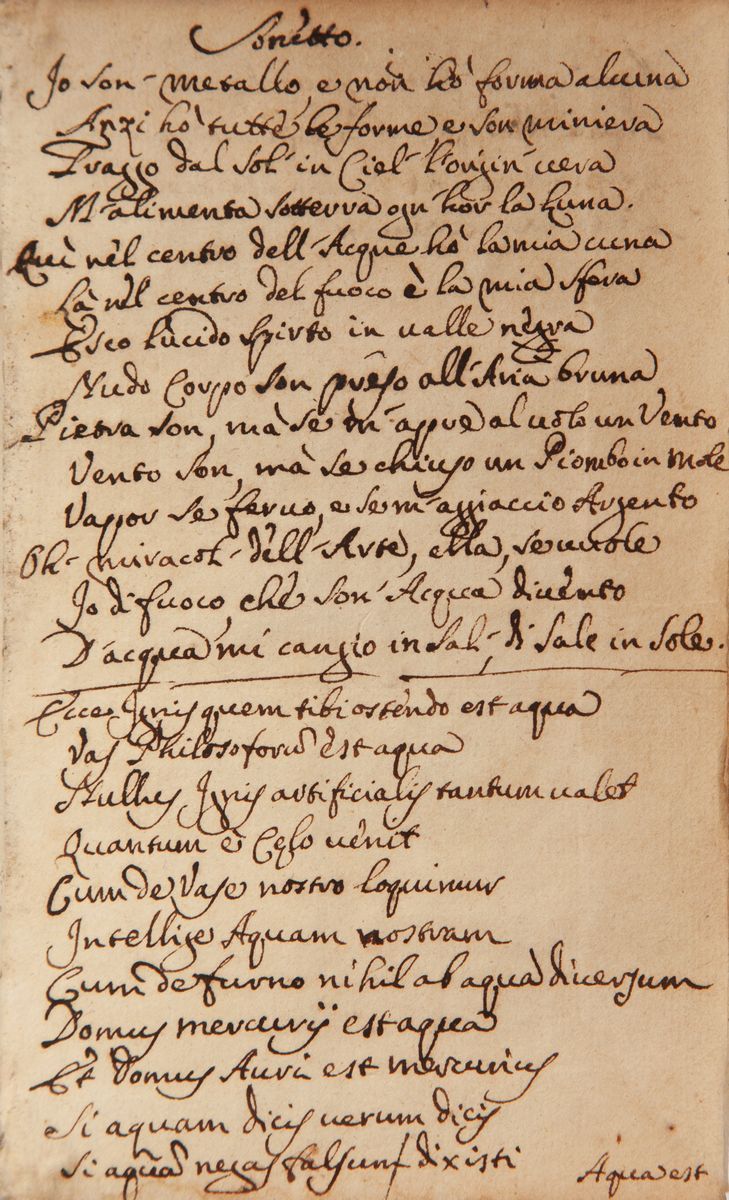 Sonètto.
Io son' metallo, e non hò forma alcuna
Anzi hò tutte le forme e son miniera
Traggo dal Sol' in Ciel' l'origin' vera
M'alimenta sotterra ogn'hor la Luna.
Quì nèl centro dell'Acque hò la mia cuna
Là nèl centro del fuoco è la mia sfera
Esco lùcido spirto in valle nègra
Nudo Corpo son prèso all'Aria bruna
Pietra son, mà se m'apre al uolo un Vento
Vento son, mà se chiuso un Piombo in mole
Vapor se feruo, e se m'agiaccio Argento
Oh' miracol' dèll'Arte, ella, se uuole
Io di fuoco, chè son' Acqua diuènto
D'acqua mi cangio in Sal', di Sale in Sole.
Ecce Ignis quem tibi ostèndo est aqua
Vas Philosoforũ èst aqua
Nullus Ignis artificialis tantum ualet
Quantum è Cęlo uènit
Cum de Vase nostro loquimur
Intellige Aquam nostram
Cum de furno nihil ab aqua diuersum
Domus mercurij est aqua
Et Domus Auri est mercurius
Si aquam dicis uerum dicis
Si aquã negas falsum dixisti
Aqua est